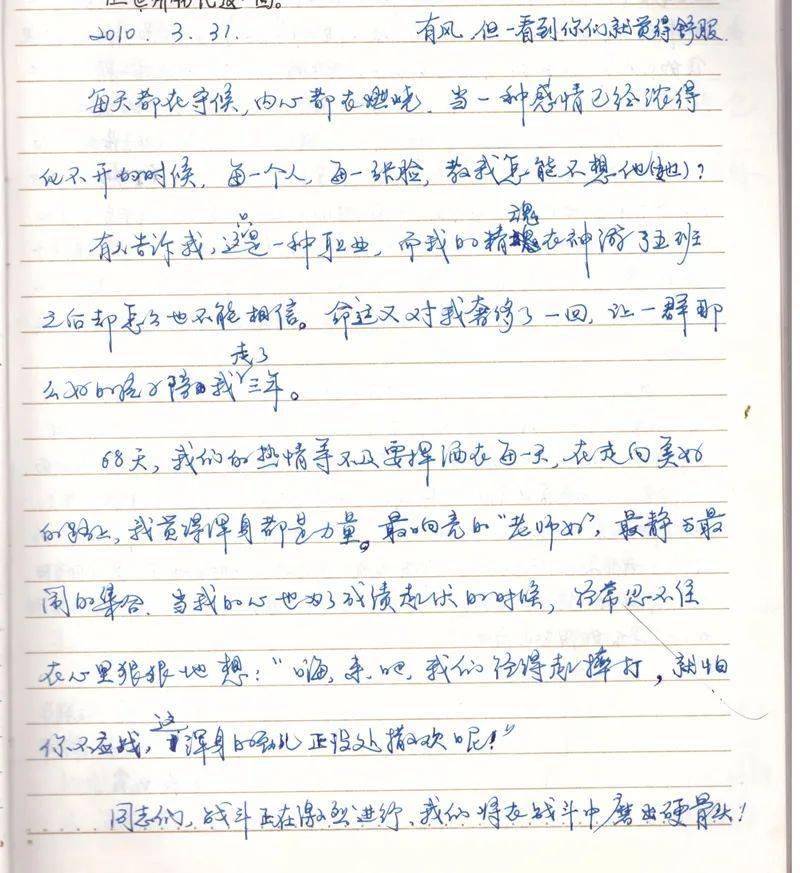 2010.3.31. 有风,但一看到你们就觉得舒服.
每天都在守候,内心都在燃烧.当一种感情已经浓得
化不开的时候,每一个人,每一张脸,教我怎能不想他(她)?
有人告诉我,这只是一种职业,而我的精魂在神游了五班
之后却怎么也不能相信。命运又对我奢侈了一回,让一群那
么好的孩子陪我走了三年。
68天,我们的热情等不及要挥洒在每一天,在走向美好
的路上,我觉得浑身都是力量。最响亮的"老师好",最静与最
闹的集合.当我的心也为了成绩起伏的时候,经常忍不住
在心里狠狠地想:"嗨,来吧,我们经得起摔打,就怕
你不应战,这浑身的劲儿正没处撒欢呢!"
同志们,战斗正在激烈进行,我们将在战斗中磨出硬骨头!